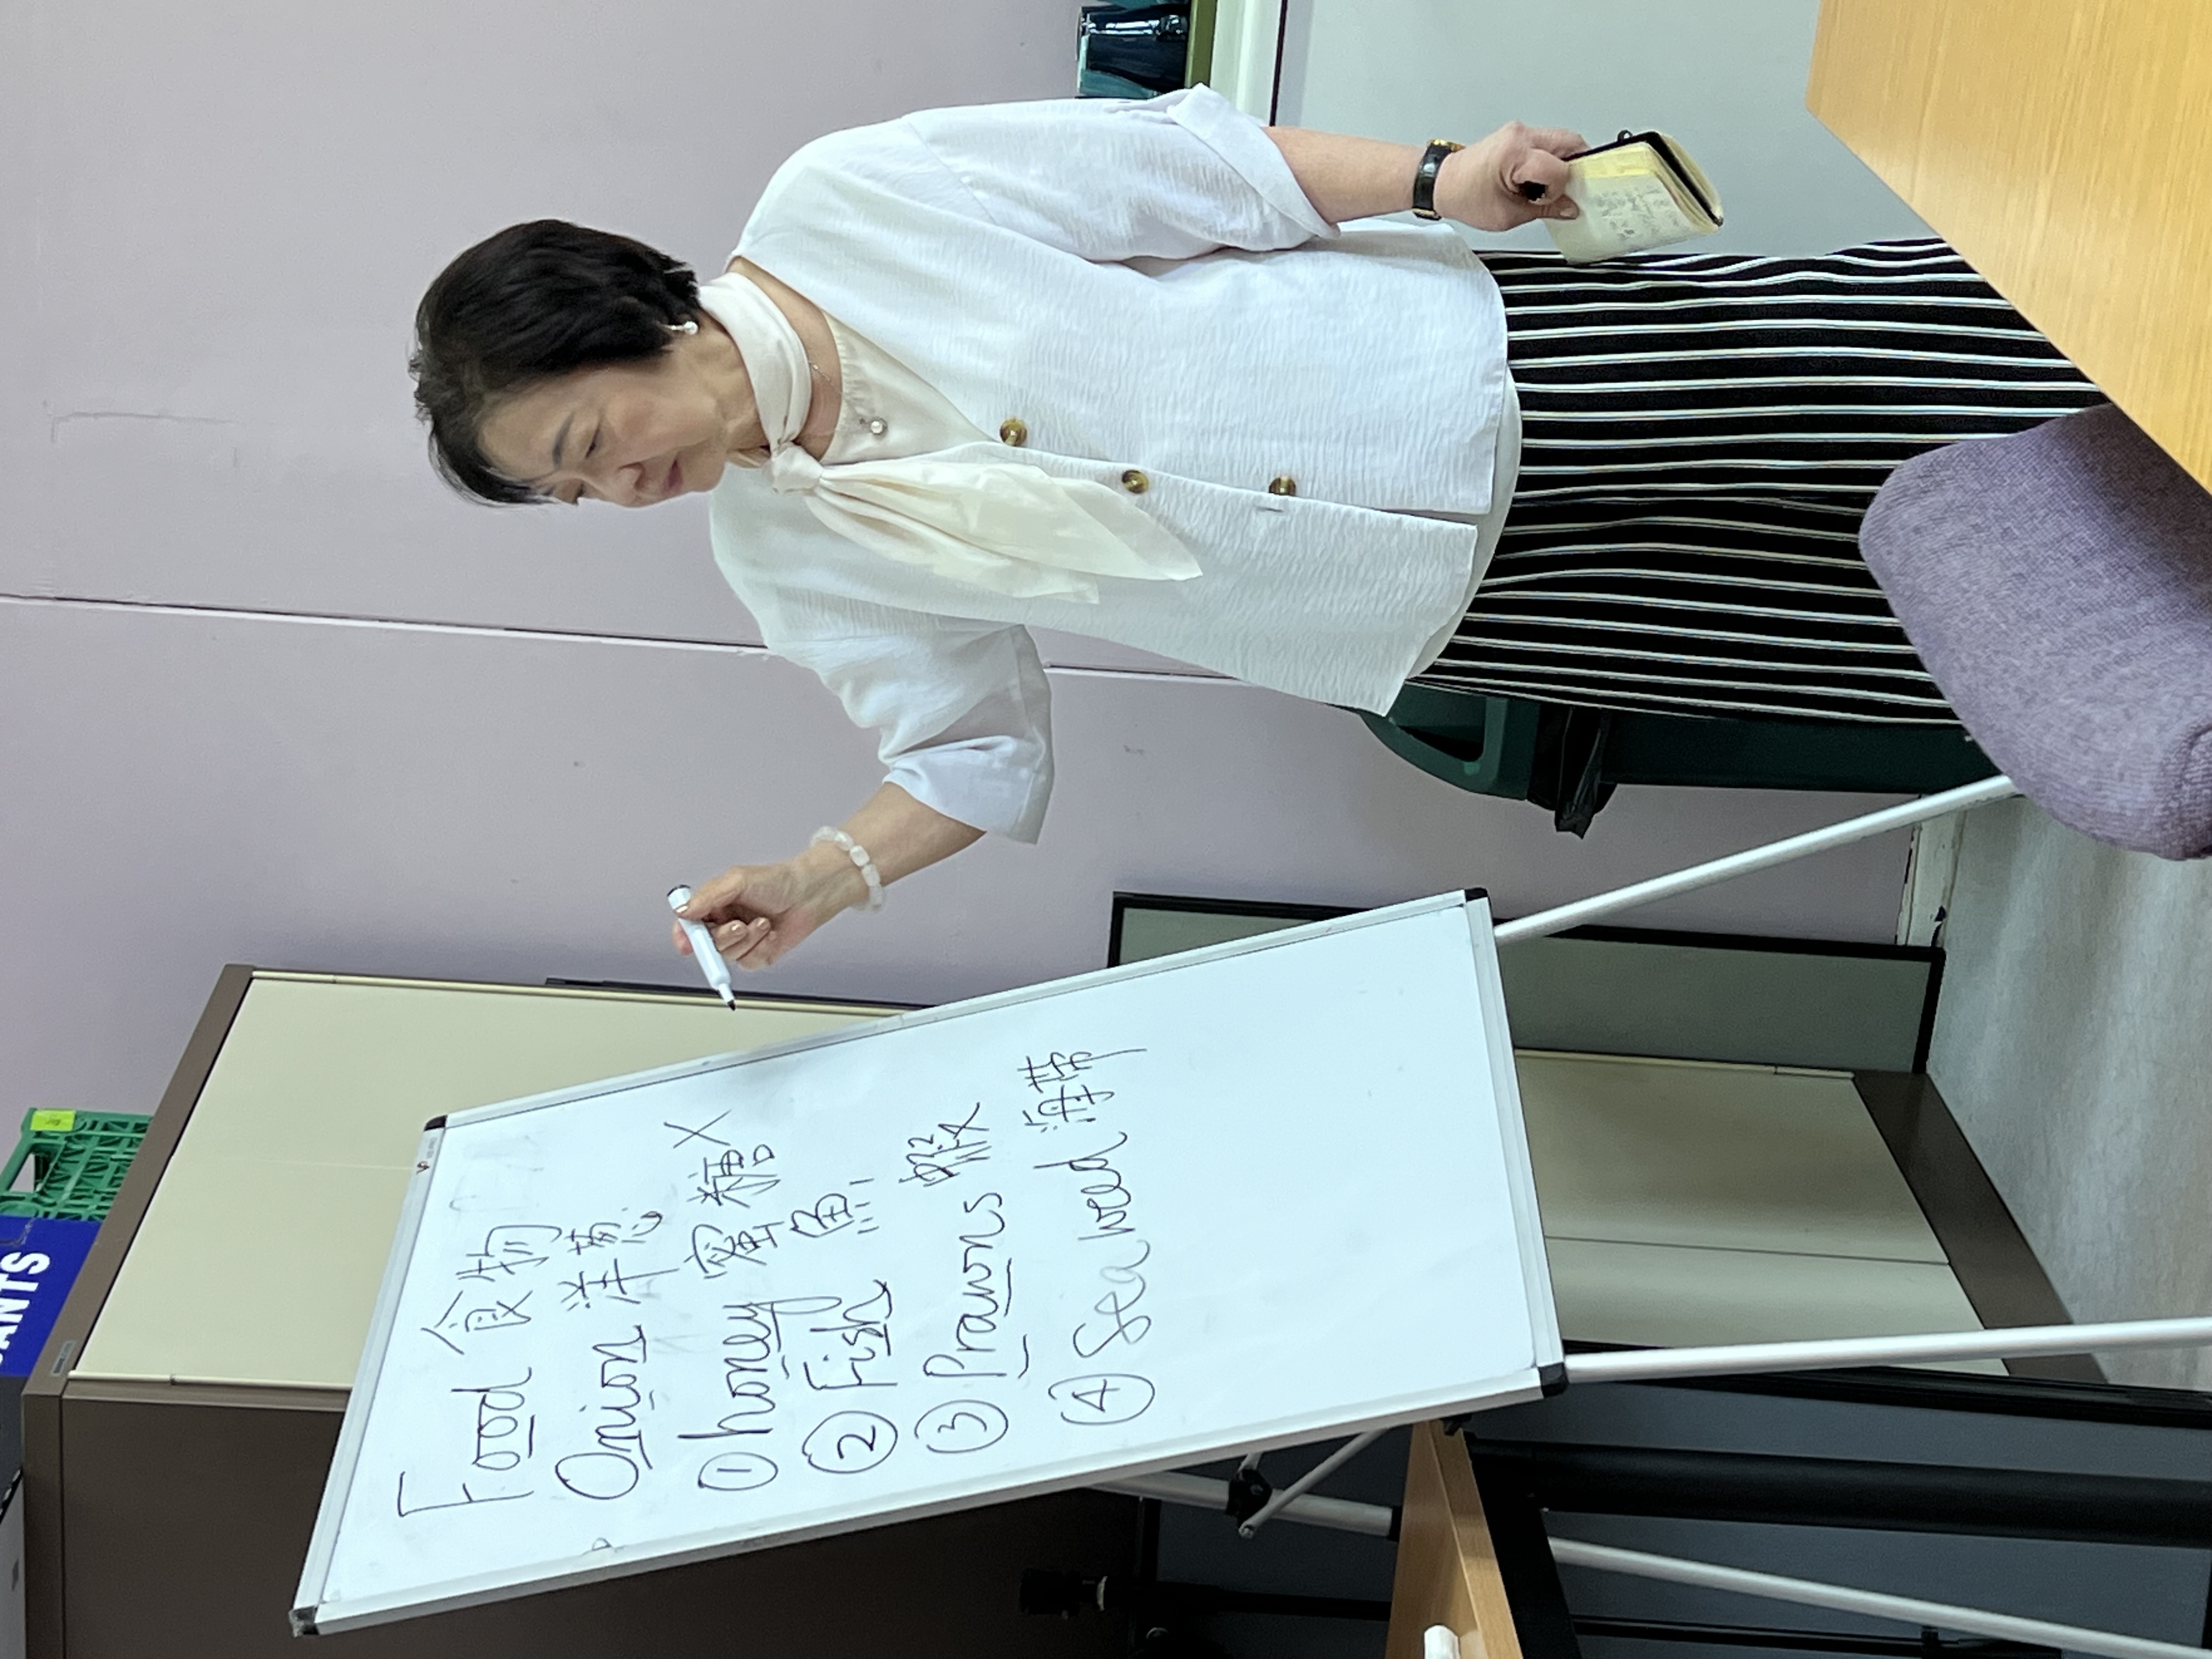 Food 食物
Onion 洋葱
① honey 蜜糖 X
② Fish 鱼
③ Prawns 虾
④ Sea weed 海带
ANTS